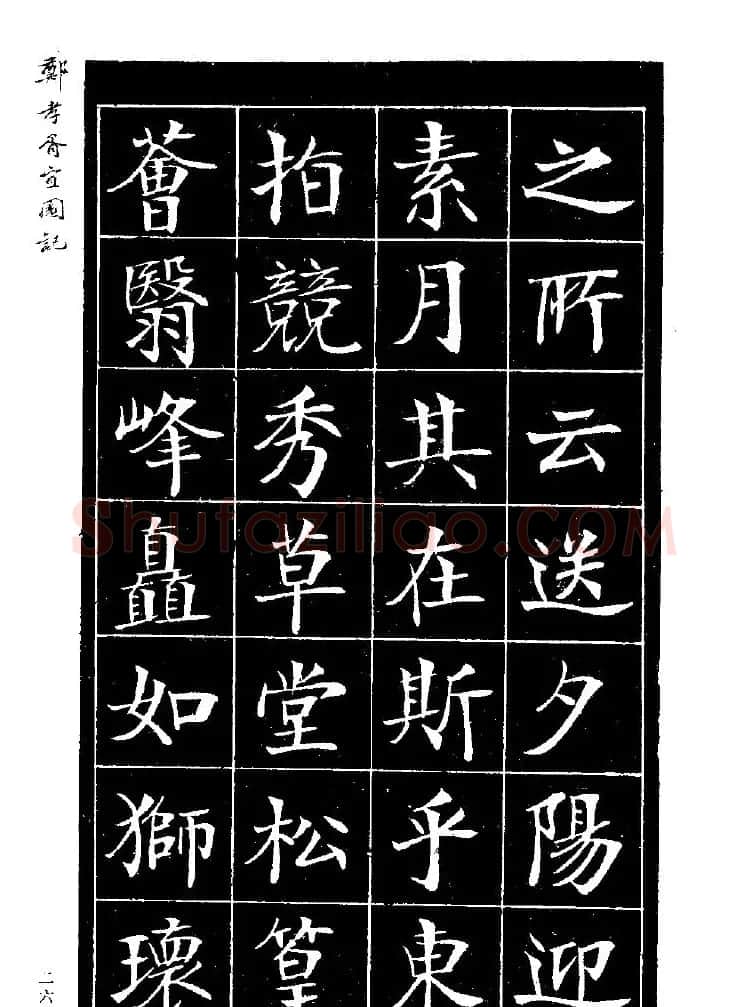 鄭孝胥宜園記
之所云送夕陽迎
素月其在斯乎東
指競秀草堂松篁
薈翳峰矗如獅瓌
Shufaziliao.COM
二六